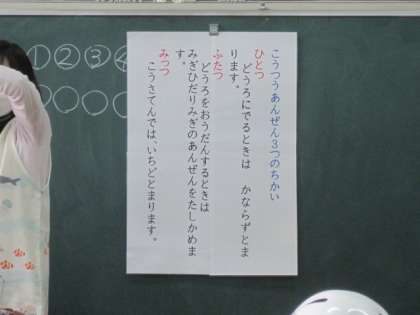 こうつうあんぜん3つのちかい
ひとつ
どうろにでるときは　かならずとま
ります。
ふたつ
どうろをおうだんするときは
みぎひだりみぎのあんぜんをたしかめま
す。
みっつ
こうさてんでは、いちどとまります。
①②③④